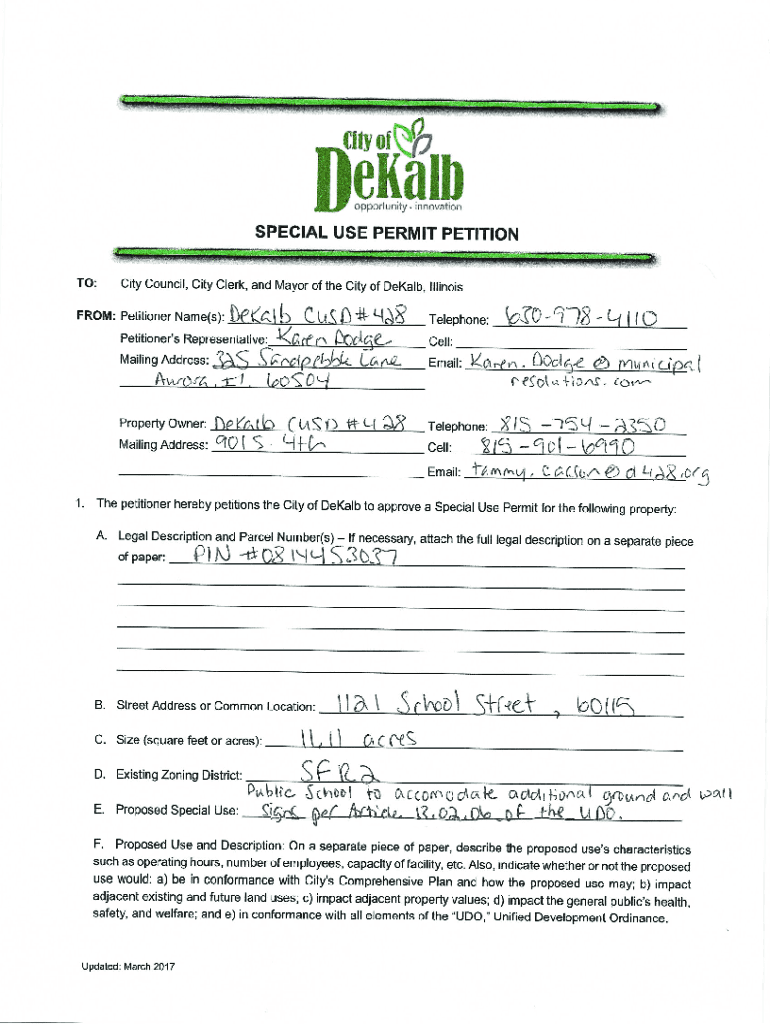 City of
DeKalb
opportunity · innovation
SPECIAL USE PERMIT PETITION
TO: City Council, City Clerk, and Mayor of the City of DeKalb, Illinois
FROM: Petitioner Name(s): DeKalb CUSD #428 Telephone: 630-978-4110
Petitioner's Representative: Karen Dodge Cell:
Mailing Address: 325 Sandpebble Lane Email: Karen.Dodge@municipal
Aurora, Il 60504 resolutions.com
Property Owner: DeKalb CUSD #428 Telephone: 815-754-2350
Mailing Address: 901 S. 4th Cell: 815-901-6990
Email: tammy.carson@d428.org
1. The petitioner hereby petitions the City of DeKalb to approve a Special Use Permit for the following property:
A. Legal Description and Parcel Number(s) – If necessary, attach the full legal description on a separate piece
of paper: PIN #0814453037
B. Street Address or Common Location: 1121 School Street, 60115
C. Size (square feet or acres): 11.11 acres
D. Existing Zoning District: SFR2
Public School to accomodate additional ground and wall
E. Proposed Special Use: Signs per Article 13.02.06 of the UDO.
F. Proposed Use and Description: On a separate piece of paper, describe the proposed use's characteristics
such as operating hours, number of employees, capacity of facility, etc. Also, indicate whether or not the proposed
use would: a) be in conformance with City's Comprehensive Plan and how the proposed use may; b) impact
adjacent existing and future land uses; c) impact adjacent property values; d) impact the general public's health,
safety, and welfare; and e) in conformance with all elements of the "UDO," Unified Development Ordinance.
Updated: March 2017